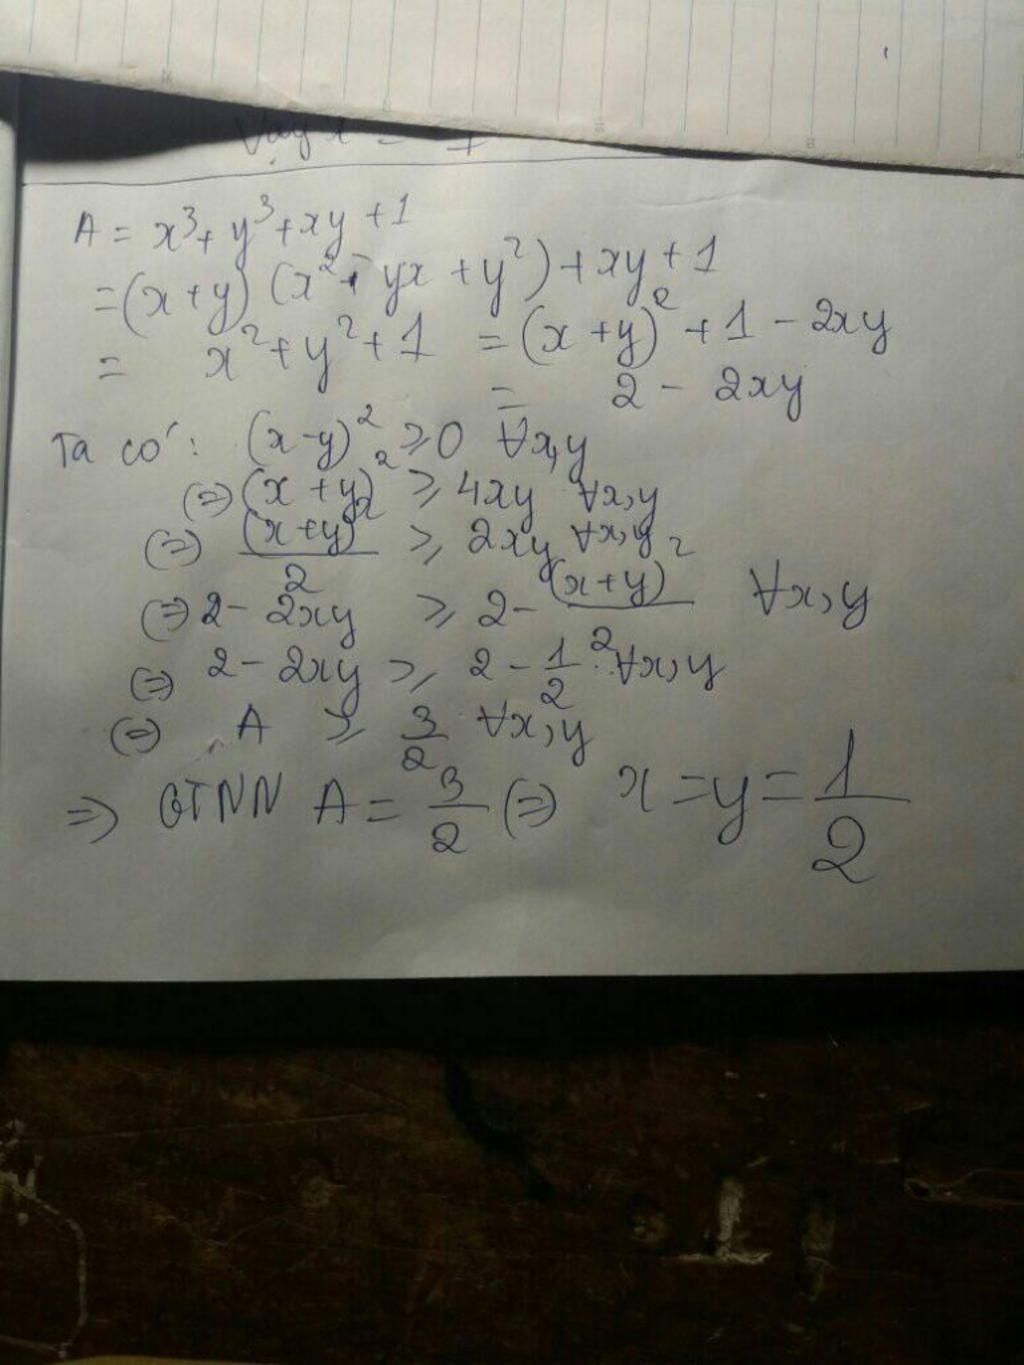 A = x³ + y³ + xy + 1
= (x + y) (x² - yx + y²) + xy + 1
= x² + y² + 1 = (x + y)² + 1 - 2xy
= 2 - 2xy
Ta có: (x - y)² ≥ 0 ∀x,y
(=) (x + y)² ≥ 4xy ∀x,y
(=) (x + y)²/2 ≥ 2xy ∀x,y
(=) 2 - 2xy ≥ 2 - (x + y)²/2 ∀x,y
(=) 2 - 2xy ≥ 2 - 1/2 ∀x,y
(=) A ≥ 3/2 ∀x,y
=) GTNN A = 3/2 (=) x = y = 1/2